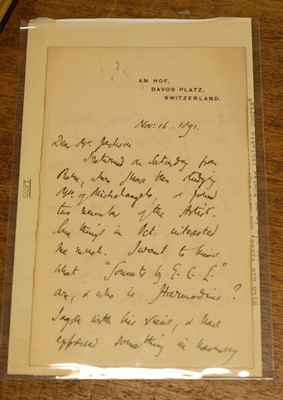 AM HOF,
DAVOS PLATZ,
SWITZERLAND.
Nov: 16. 1891.
Dear Mr. Jackson
I returned on Saturday from
Rome, where I have been studying
Mss. of Michelangelo, & found
two numbers of the Artist.
Some things in Oct: interested
me much. I want to know
what "Sonnets by E. C. L."
are, & who is Harmodius?
I agree with his views, & have
expressed something in
COPY